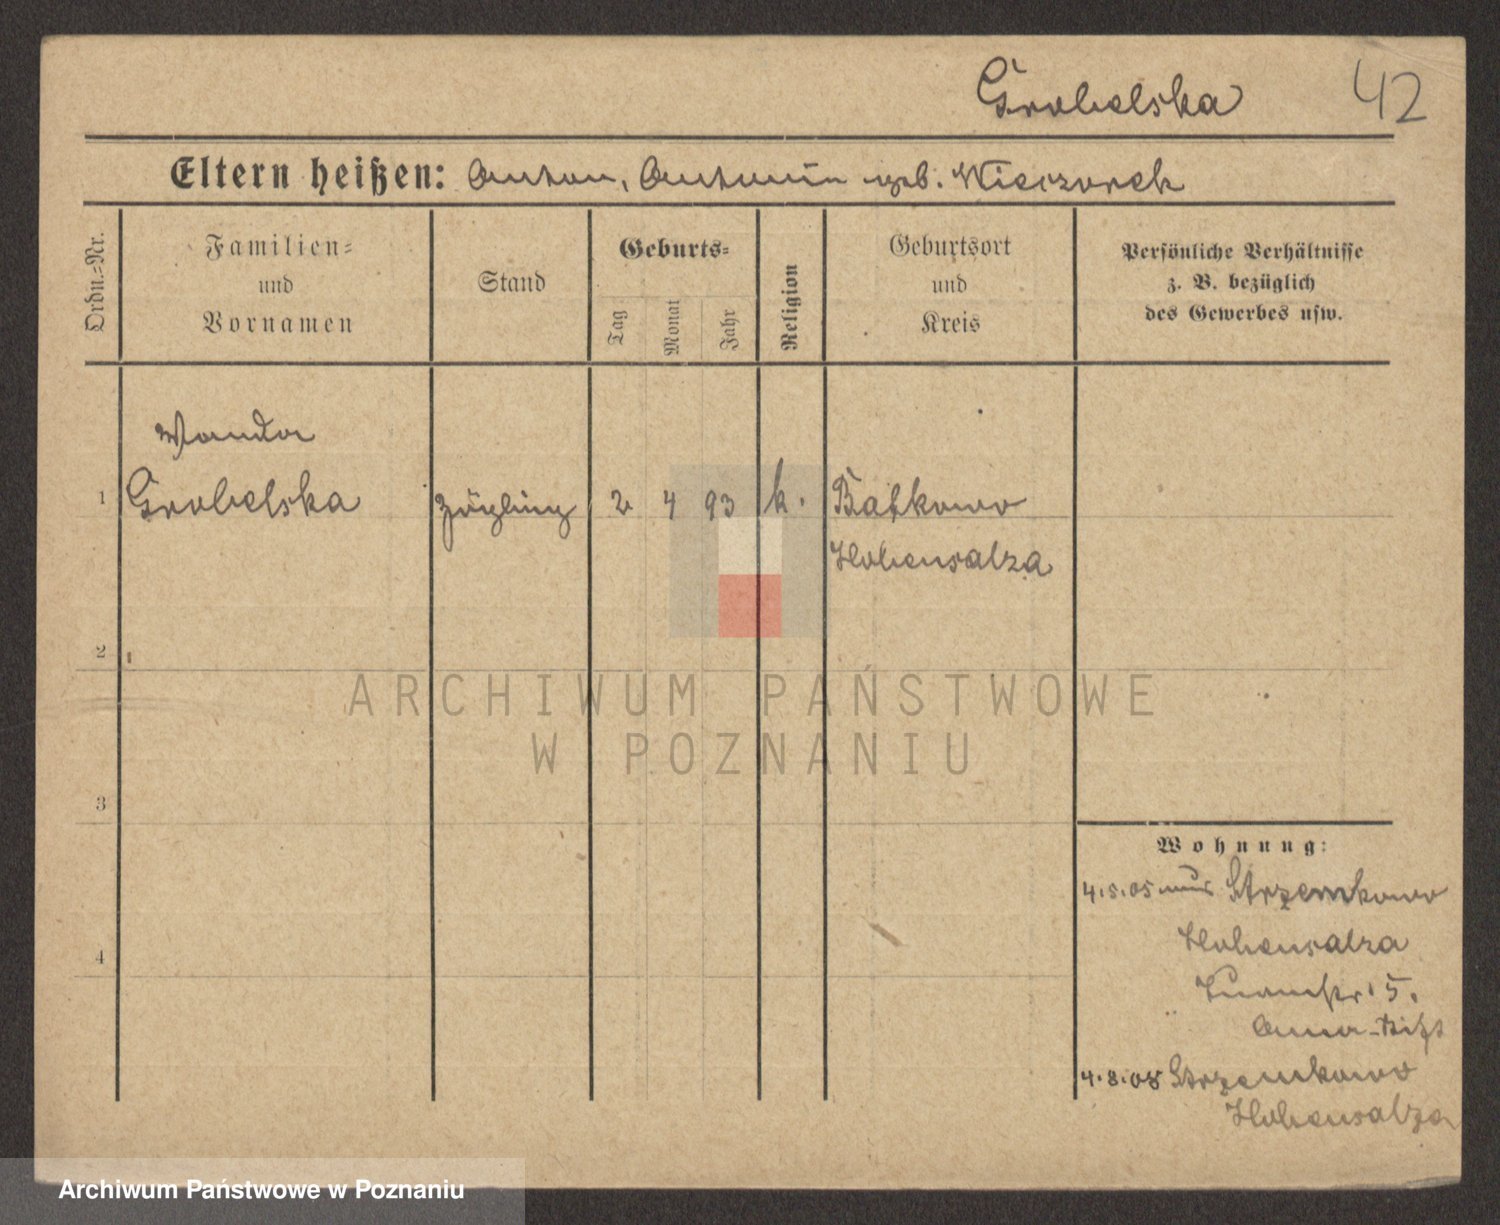 Grobelska 42
Eltern heißen: Anton, Antonin geb. Wieczorek
Ordn.=Nr.
Familien=
und
Vornamen
Stand
Geburts=
Tag
Monat
Jahr
Religion
Geburtsort
und
Kreis
Persönliche Verhältnisse
z. B. bezüglich
des Gewerbes usw.
Wanda
1 Grobelska Zögling 2 4 93 k. Batkowo
Hohensalza
2
ARCHIWUM PAŃSTWOWE
W POZNANIU
3
Wohnung:
4.5.05 aus Strzemkowo
Hohensalza
4
5.
Anna-Stift
4.8.08 Strzemkowo
Hohensalza
Archiwum Państwowe w Poznaniu